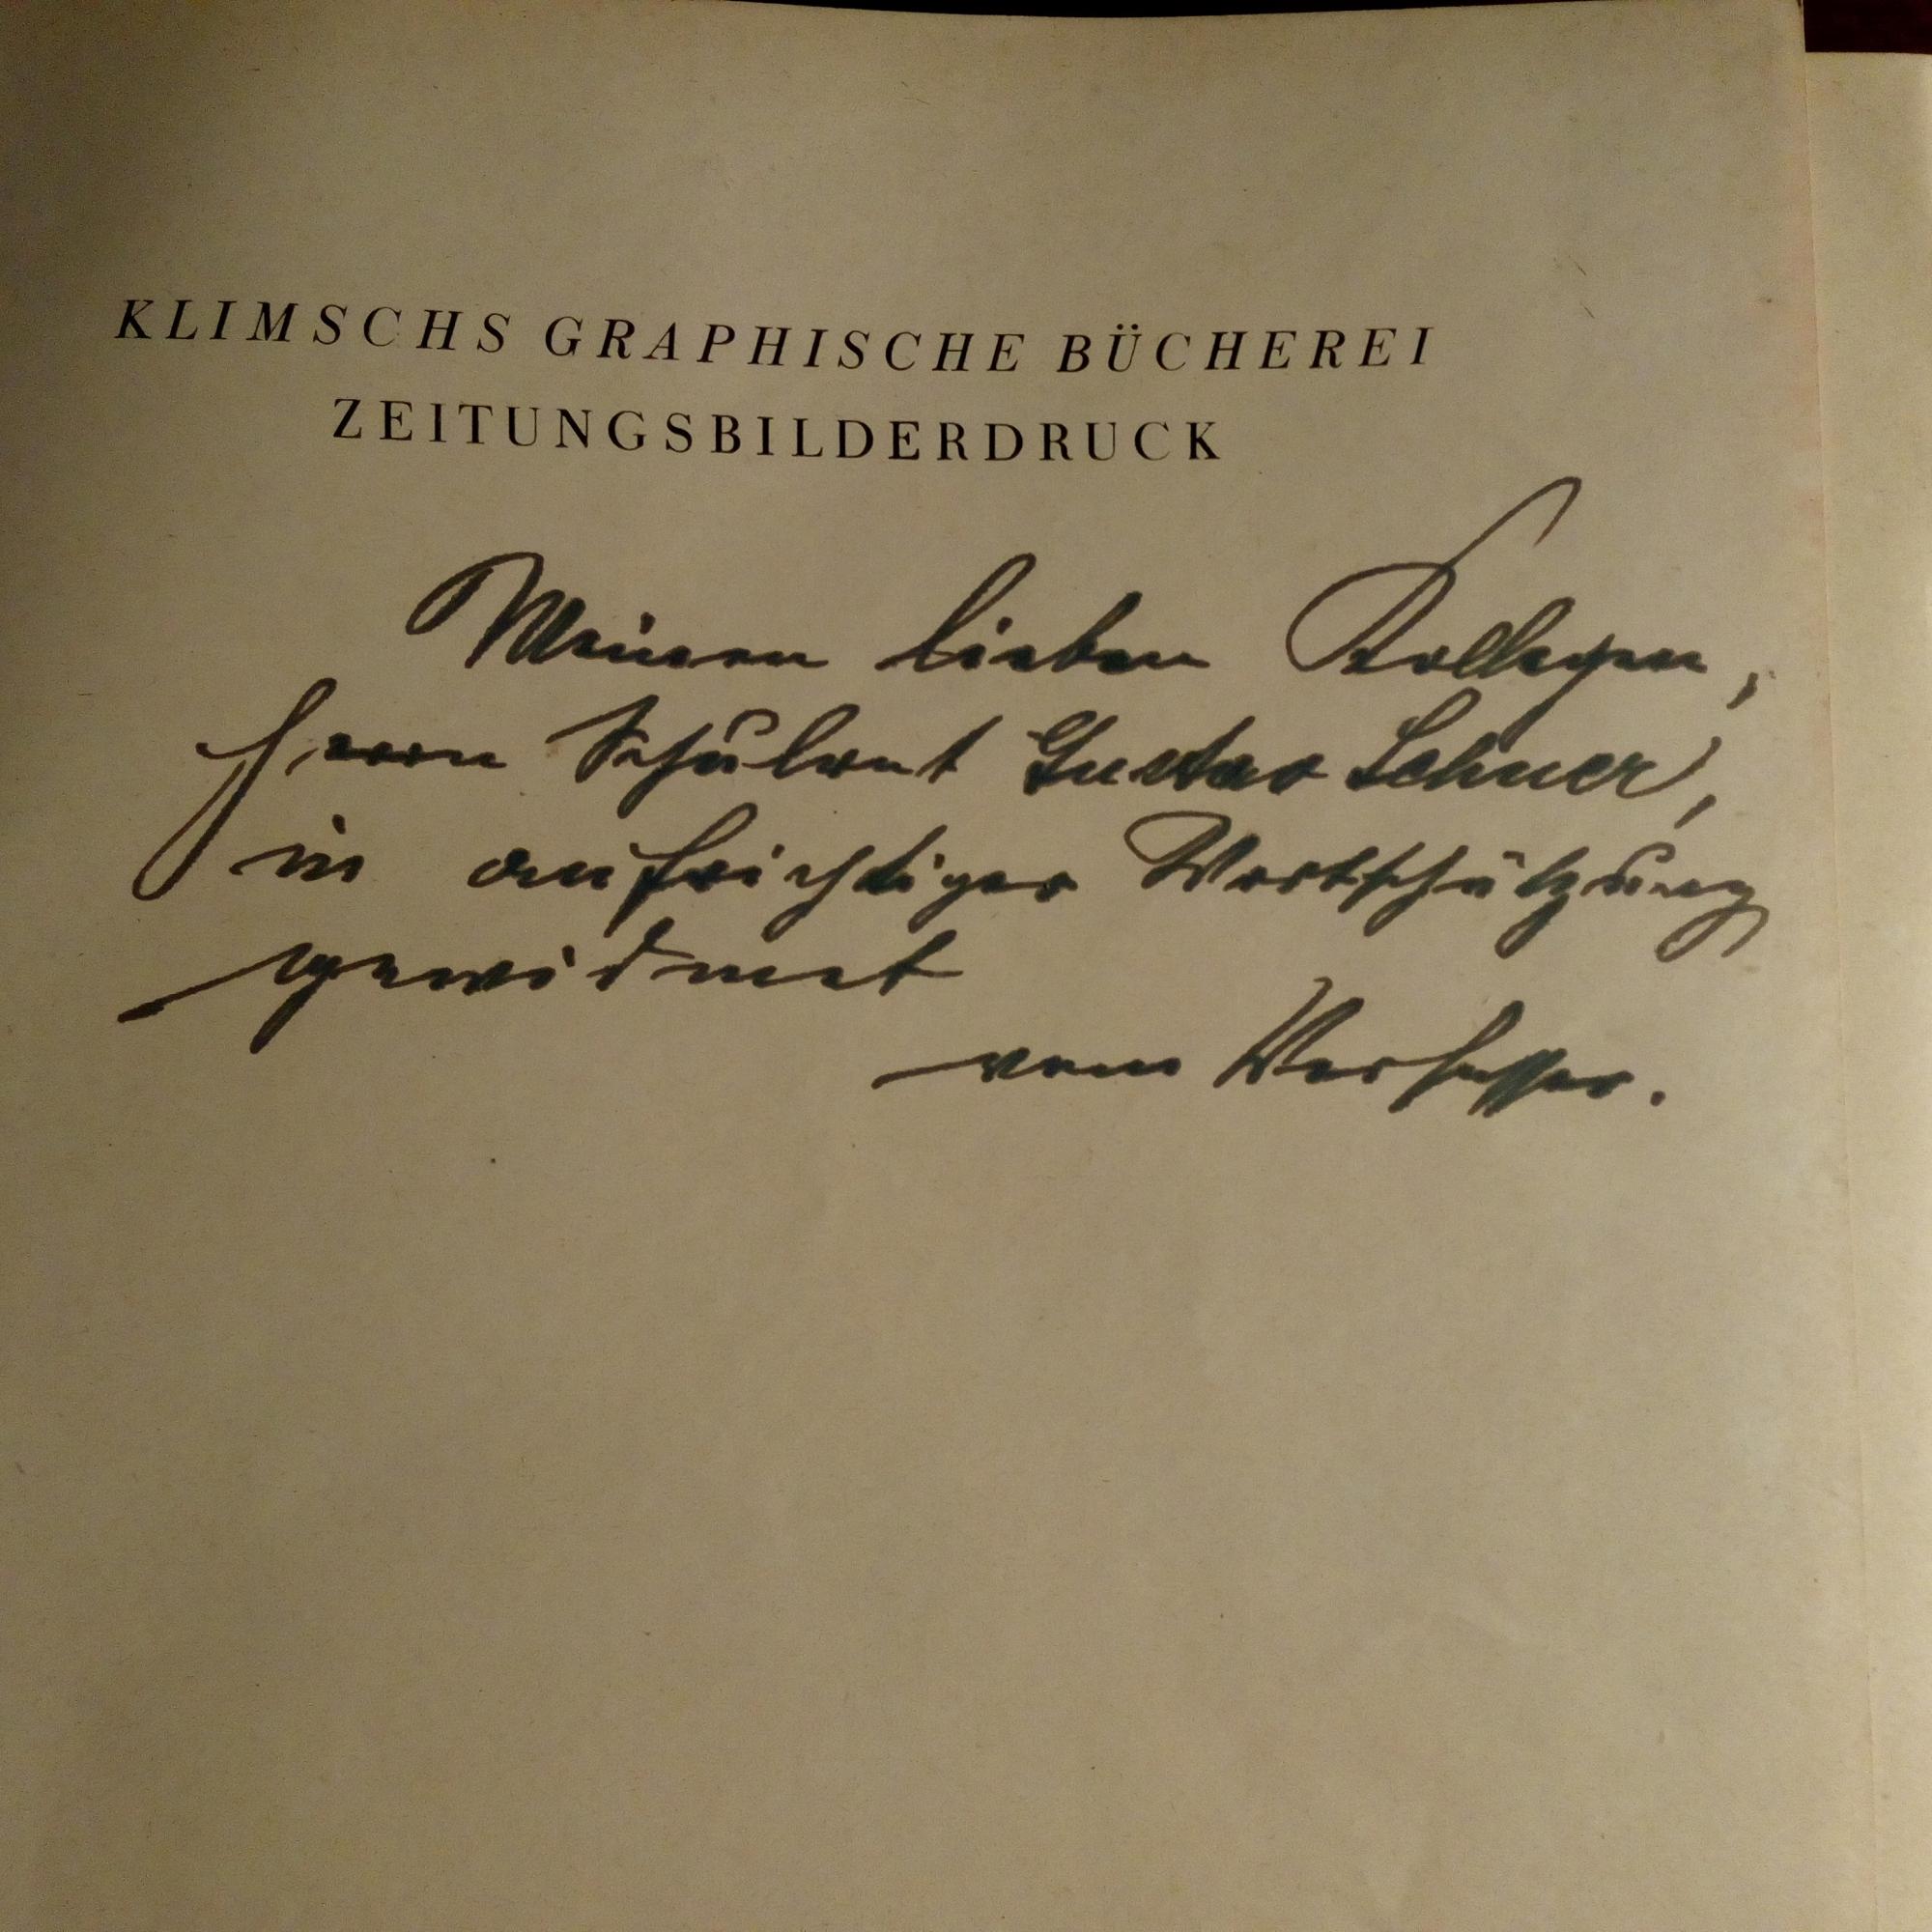 KLIMSCHS GRAPHISCHE BÜCHEREI
ZEITUNGSBILDERDRUCK
Meinem lieben Kollegen,
Herrn Schulrat Gustav Lehner,
in aufrichtiger Wertschätzung
gewidmet
vom Verfasser.